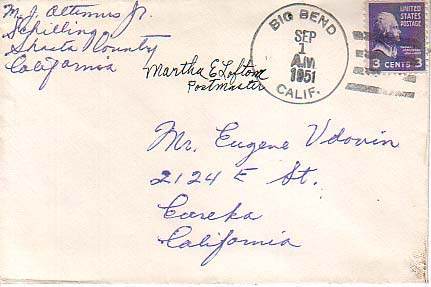 M. J. Altimus Jr.
Schilling
Shasta County
California
Martha E Loftone
Postmaster
BIG BEND
SEP
1
A.M.
1951
CALIF.
UNITED
STATES
POSTAGE
3 CENTS 3
Mr. Eugene Vdovin
2124 E St.
Eureka
California